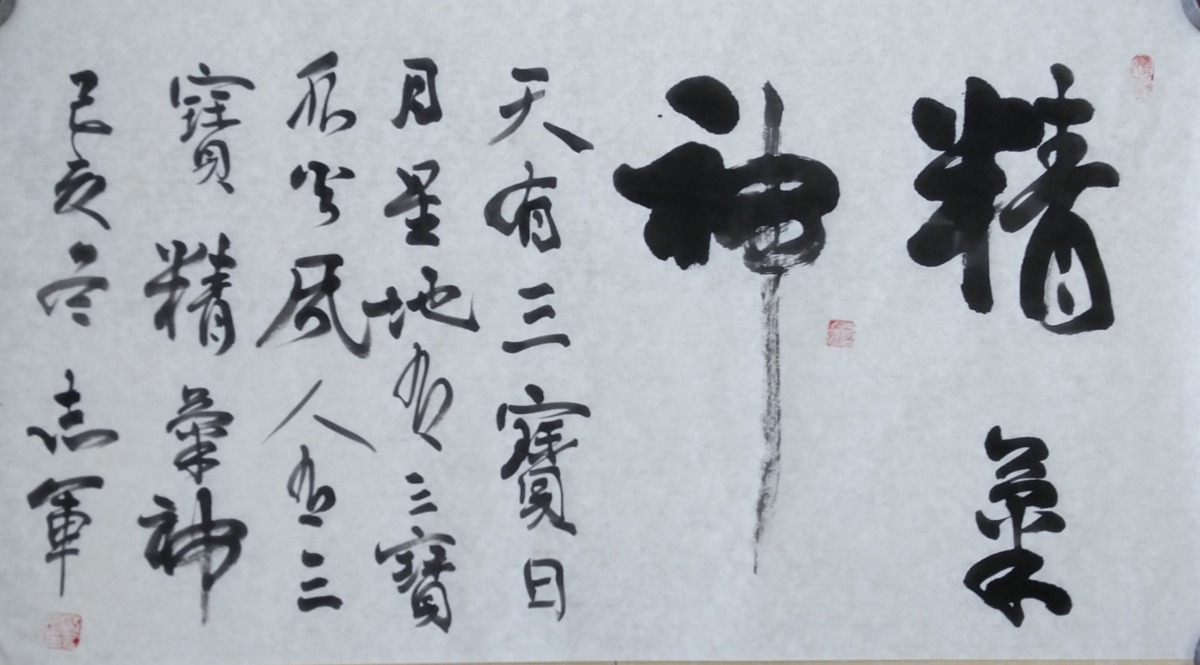 精氣
神
天有三寶日
月星地有三寶
水火風人有三
寶精氣神
己亥冬志軍